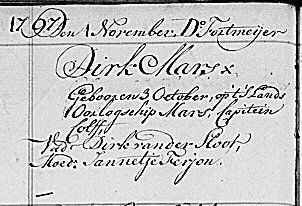 1767. Den 1 November. Ds. Fortmeijer
Dirk Mars x
Geboopen 3 October, op 's Lands
Oorlogschip Mars, Capitein
Vad. Dirk van der Sloot,
Moed. Jannetje Ferjon.